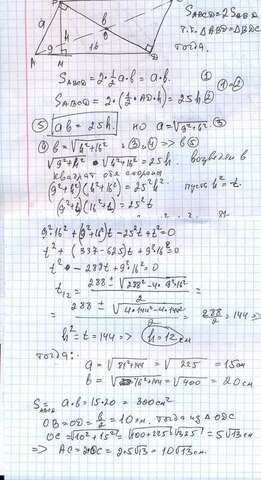 B
a
b
O
h
9
16
A
M
D
S_ABCD = 2S_ABD
т.к. ΔABD = ΔBDC
тогда.
S_ABCD = 2·½ a·b = a·b. ①
S_ABCD = 2·(½·AD·h) = 25h ②
⑤ ab = 25h. но a = √(9²+h²) ③
④ b = √(h²+16²)
√(9²+h²) · √(h²+16²) = 25h. возведём в
квадрат обе стороны
(9²+h²)(h²+16²) = 25²h² пусть h² = t.
(9²+t)(16²+t) = 25²t
9²·16² + (9²+16²)t − 25²t + t² = 0
t² + (337−625)t + 9²·16² = 0
t² − 288t + 9²·16² = 0
t₁,₂ = (288 ± √(288² − 4·9²·16²))/2 =
= (288 ± √(4·144² − 4·144²))/2 = 288/2 = 144 =>
h² = t = 144 => h = 12 см
тогда:
a = √(81+144) = √225 = 15 см
b = √(16²+144) = √400 = 20 см
S = a·b = 15·20 = 300 см²
OB = OD = b/2 = 10 см. тогда из ΔODC
OC = √(10²+15²) = √(100+225) = √325 = 5√13 см
=> AC = 2OC = 2·5√13 = 10√13 см.